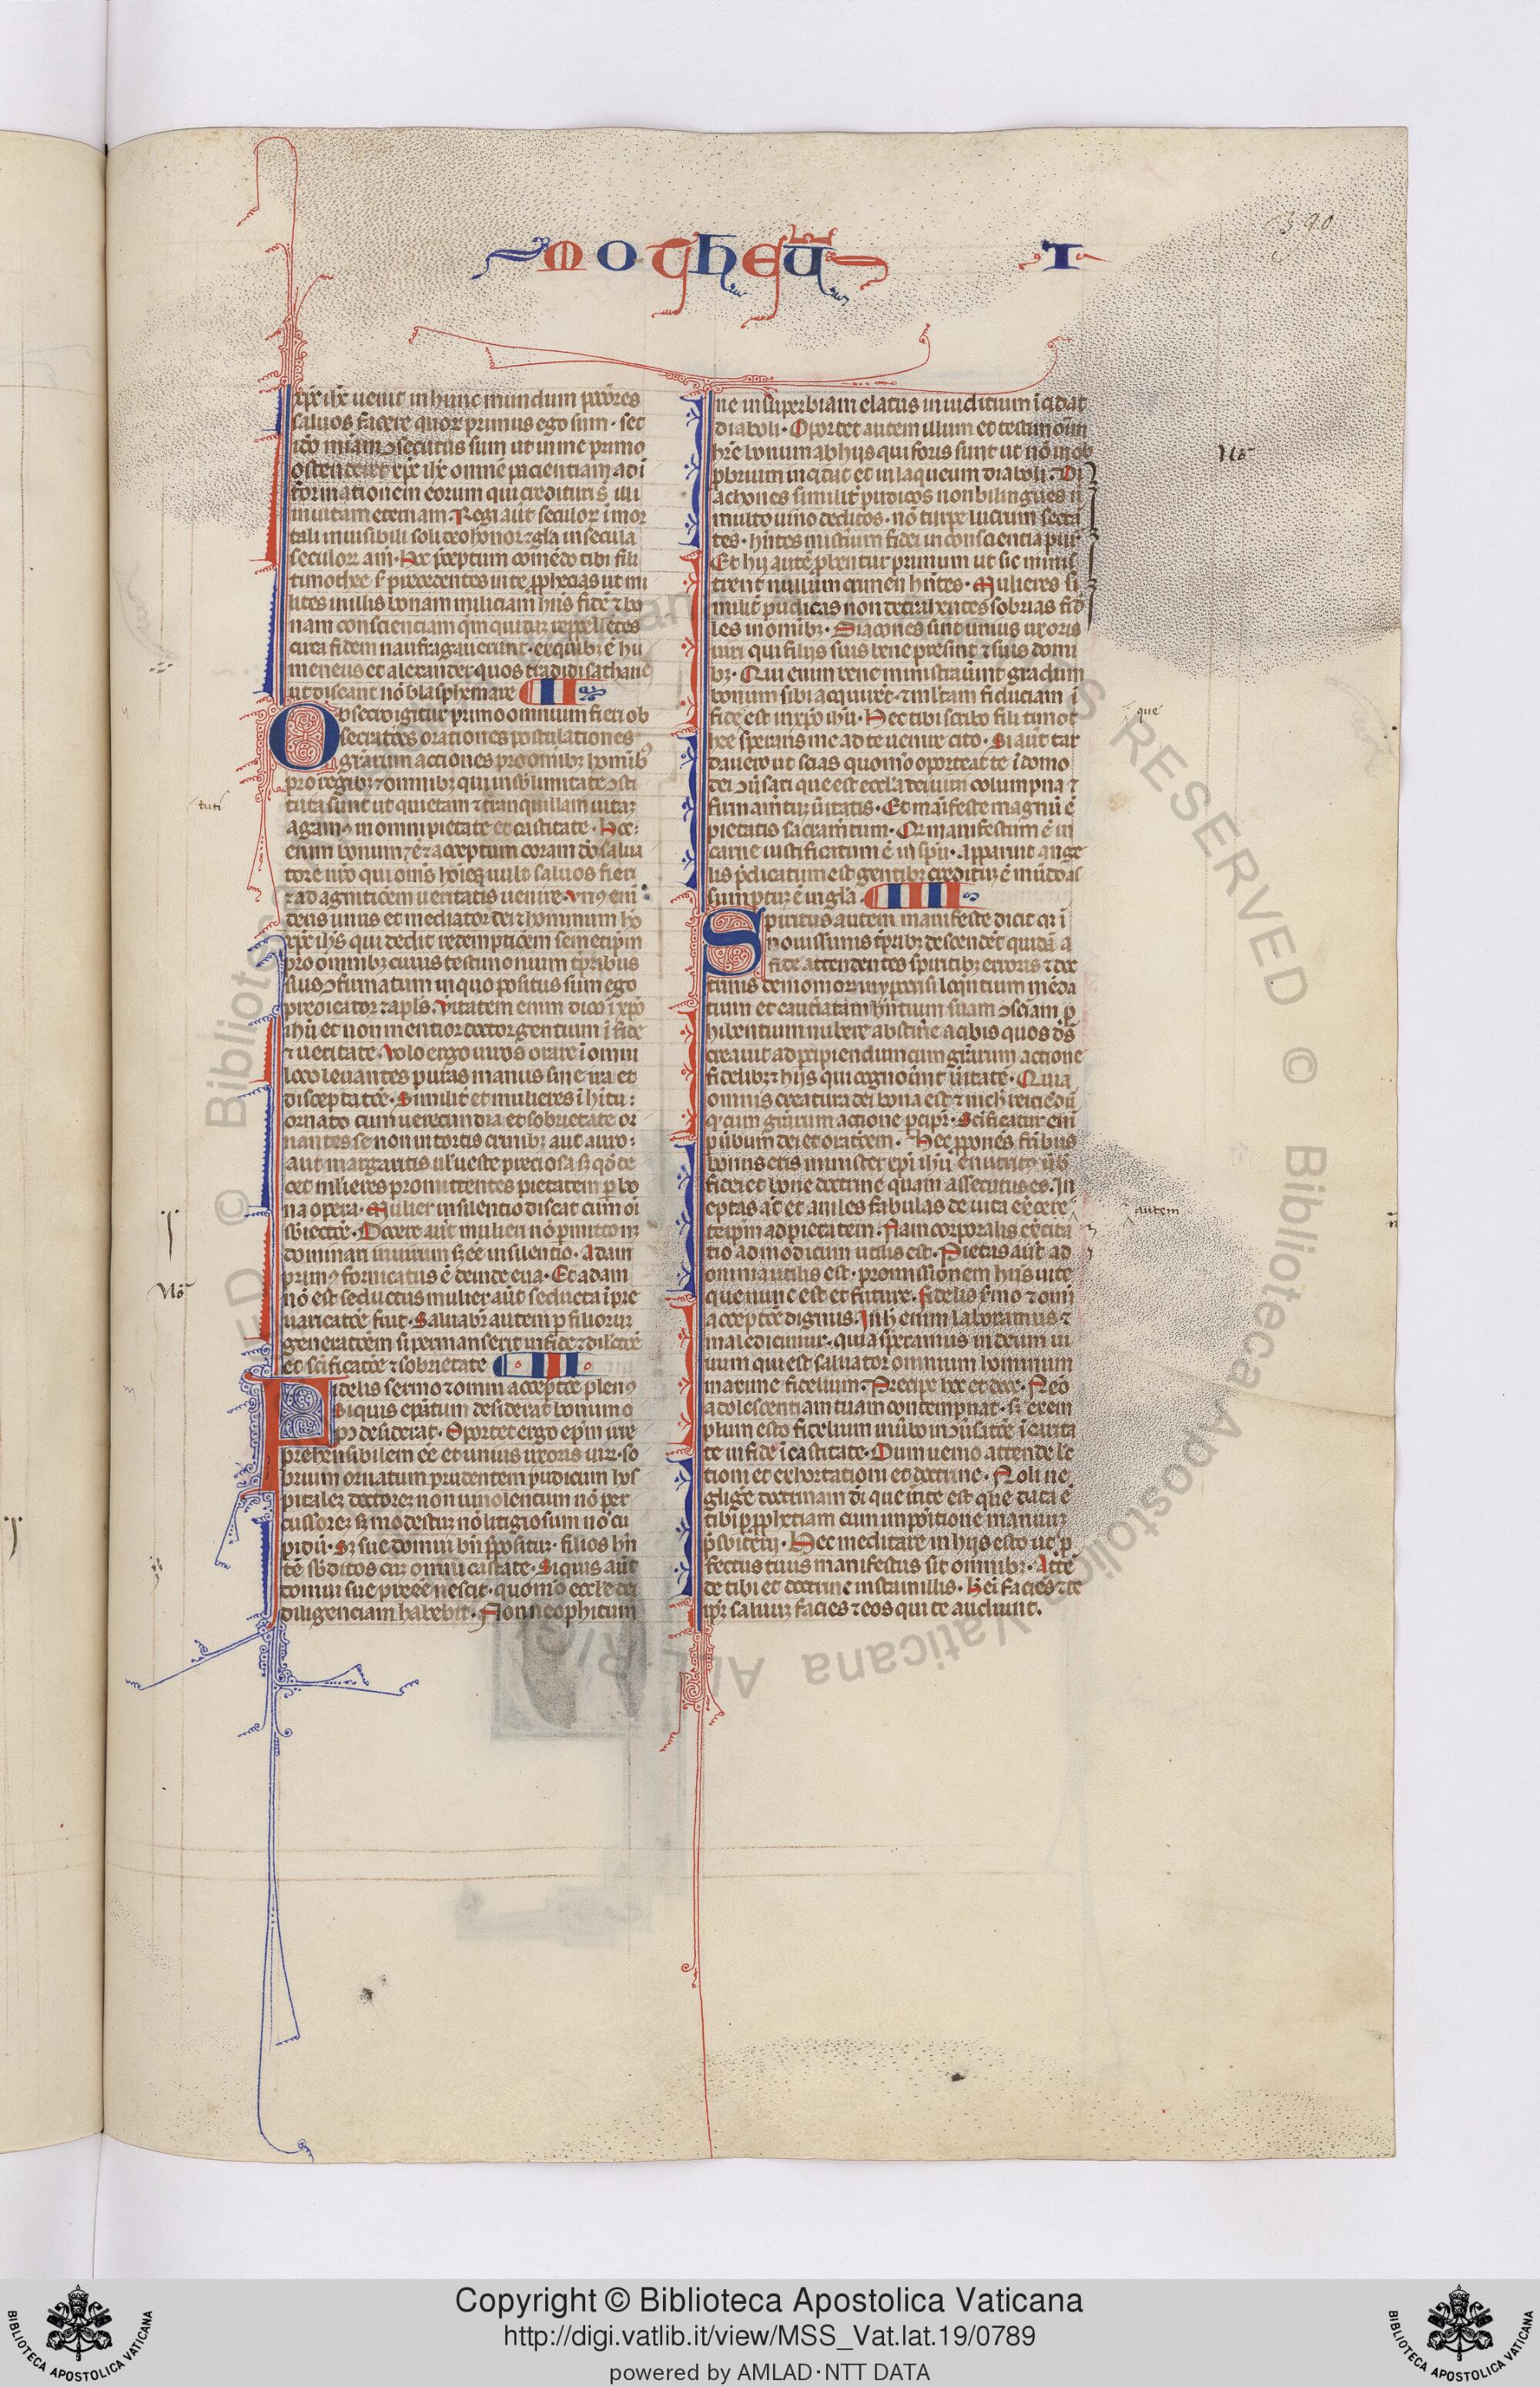 390
MOTHEU I
xpc ihc uenit in hunc mundum pctores
saluos facere quorum primus ego sum. sed
ideo miam consecutus sum ut in me primo
ostenderet xpc ihc omnem pacientiam ad in
formationem eorum qui credituri st illi
in uitam eternam. Regi aut seculorum inmor
tali inuisibili soli deo honor et gla in secula
seculorum am. Hoc preceptum comendo tibi fili
timothee secundum precedentes in te prophecias ut mi
lites in illis bonam miliciam hns fidem et bo
nam conscienciam quam quidam reppellentes
circa fidem naufragauerunt. ex quibus est hu
meneus et alexander quos tradidi sathane
ut discant non blasphemare II
Obsecro igitur primo omnium fieri ob
secrationes orationes postulationes
gratiarum actiones pro omnibus hominibus
pro regibus et omnibus qui in sublimitate consti
tuti
tuta sunt ut quietam et tranquillam uitam
agamus in omni pietate et castitate. Hoc
enim bonum est et acceptum coram deo salua
tore nro qui omnes hoies uult saluos fieri
et ad agnitionem ueritatis uenire. Vnus enim
deus unus et mediator dei et hominum ho
xpc ihs qui dedit redemptionem semetipsum
pro omnibus cuius testimonium temporibus
suis confirmatum in quo positus sum ego
predicator et apls. Veritatem enim dico in xpo
ihu et non mentior doctor gentium in fide
et ueritate. Volo ergo uiros orare in omni
loco leuantes puras manus sine ira et
disceptatione. Similiter et mulieres in habitu
ornato cum uerecundia et sobrietate or
nantes se non in tortis crinibus aut auro
aut margaritis uel ueste preciosa sed quod de
cet mulieres promittentes pietatem per bo
na opera. Mulier in silentio discat cum omni
subiectione. Docere aut mulieri non permitto neque
dominari in uirum sed esse in silentio. Adam
primus formatus est deinde eua. Et adam
No
non est seductus mulier aut seducta in pre
uaricatione fuit. Saluabitur autem per filiorum
generationem si permanserit in fide et dilectione
et scificatione et sobrietate III
Fidelis sermo et omni acceptione plenus
Siquis epatum desiderat bonum o
pus desiderat. Oportet ergo epm irre
prehensibilem esse et unius uxoris uirum. so
brium ornatum prudentem pudicum hos
pitalem doctorem non uinolentum non per
cussorem sed modestum non litigiosum non cu
pidum. Sed sue domui bene prepositum. filios haben
tem subditos cum omni castitate. Siquis aut
domui sue preesse nescit. quomodo ecclesie dei
diligenciam habebit. Non neophitum
ne in superbiam elatus in iuditium incidat
diaboli. Oportet autem illum et testimonium
hre bonum ab hiis qui foris sunt ut non in ob
No
probrium incidat et in laqueum diaboli. Di
achones similiter pudicos non bilingues non
multo uino deditos. non turpe lucrum secta
tes. hntes misterium fidei in consciencia pura
Et hii autem probentur primum ut sic minis
trent nullum crimen hntes. Mulieres si
militer pudicas non detrahentes sobrias fide
les in omnibus. Diacones sint unius uxoris
uiri qui filiis suis bene presint et suis domi
bus. Qui enim bene ministrauerint gradum
bonum sibi acquirent. et multam fiduciam in
que
fide est in xpo ihu. Hec tibi scribo fili timot
hee sperans me ad te uenire cito. Si aut tar
dauero ut scias quomodo oporteat te in domo
dei conuersari que est eccla dei uiui columpna et
firmamentum ueritatis. Et manifeste magnum est
pietatis sacramentum. Quod manifestum est in
carne iustificatum est in spu. apparuit ange
lis predicatum est gentibus creditum est in mundo as
sumptum est in gla. IIII
Spiritus autem manifeste dicit quia in
nouissimis temporibus descendent quidam a
fide attendentes spiritibus erroris et doc
trinis demoniorum in ypocrisi loquentium menda
cium et cauteriatam habentium suam conscientiam pro
hibentium nubere abstinere a cibis quos ds
creauit ad percipiendum cum gratiarum actione
fidelibus et hiis qui cognouerunt ueritatem. Quia
omnis creatura dei bona est et nichil reiciendum
quod cum gratiarum actione percipitur. Scificatur enim
per uerbum dei et orationem. Hec proponens fratribus
bonus eris minister xpi ihu enutritus uerbis
fidei et bone doctrine quam assecutus es. In
autem
eptas aut et aniles fabulas deuita exerce
teipsum ad pietatem. Nam corporalis exercita
tio ad modicum utilis est. Pietas aut ad
omnia utilis est. promissionem hns uite
que nunc est et future. Fidelis sermo et omni
acceptione dignus. In hoc enim laboramus et
maledicimur. quia speramus in deum ui
uum qui est saluator omnium hominum
maxime fidelium. Precipe hec et doce. Nemo
adolescentiam tuam contempnat. sed exem
plum esto fidelium in uerbo in conuersatione in carita
te in fide in castitate. Dum uenio attende le
tioni et exhortationi et doctrine. Noli ne
gligere doctrinam dei que in te est que data est
tibi per prophetiam cum impositione manuum
presbiterii. Hec meditare in hiis esto ut pro
fectus tuus manifestus sit omnibus. Atten
de tibi et doctrine insta in illis. Hec enim faciens et te
ipsum saluum facies et eos qui te audiunt.
© Biblioteca Apostolica Vaticana ALL RIGHTS RESERVED
Copyright © Biblioteca Apostolica Vaticana
http://digi.vatlib.it/view/MSS_Vat.lat.19/0789
powered by AMLAD·NTT DATA
BIBLIOTECA APOSTOLICA VATICANA
BIBLIOTECA APOSTOLICA VATICANA